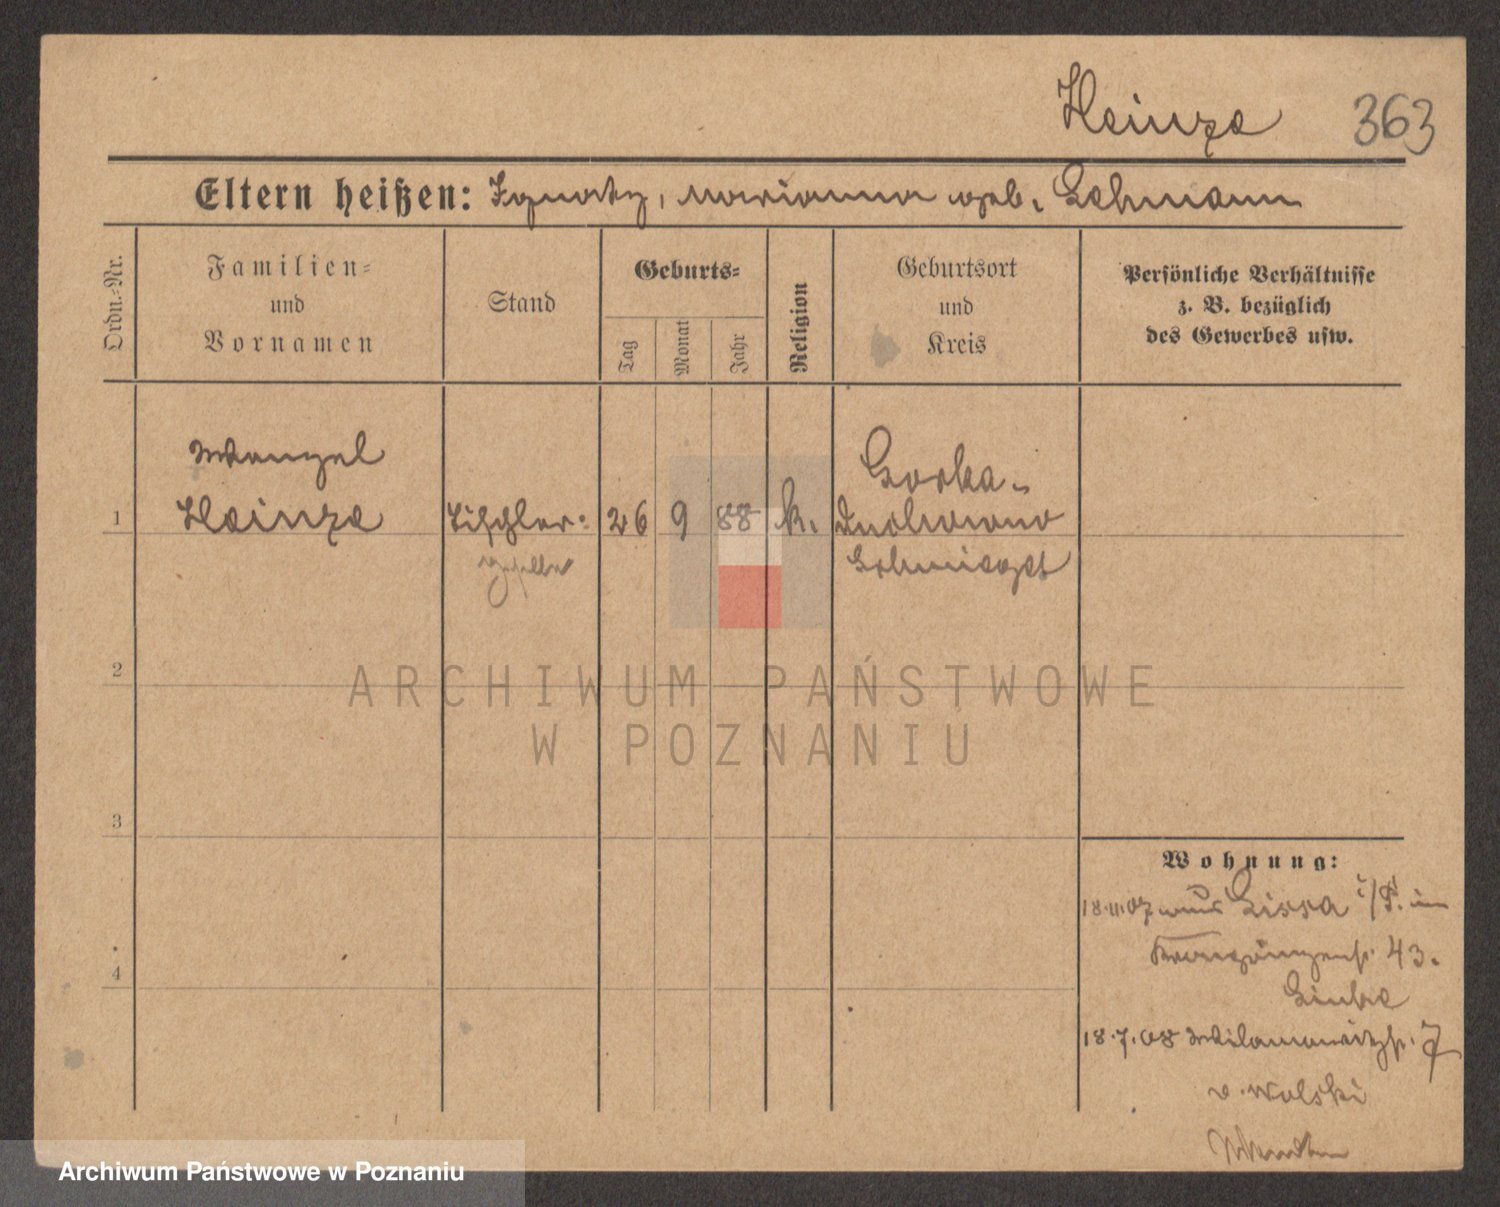 Heinze 363
Eltern heißen: Ignatz, Marianna geb. Lehmann
Ordn.-Nr.
Familien-
und
Vornamen
Stand
Geburts-
Tag
Monat
Jahr
Religion
Geburtsort
und
Kreis
Persönliche Verhältnisse
z. B. bezüglich
des Gewerbes usw.
Wenzel
Gorka-
1 Heinze Tischler- 26 9 88 k. Duchowna
geselle Schmiegel
2
ARCHIWUM PAŃSTWOWE
W POZNANIU
3
Wohnung:
18.11.07 aus Lissa i/P. in
Kronprinzenstr. 43.
Linke
4
18.7.08 Wilamowitzstr. 7
v. Wolski
Archiwum Państwowe w Poznaniu